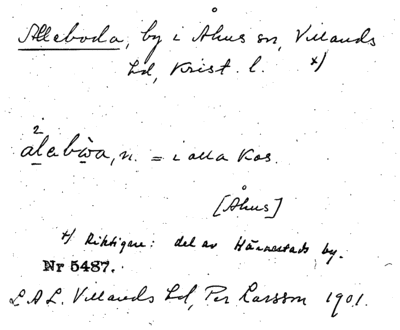 Alleboda, by i Åhus sn, Villands
hd, Krist. l. x)
2
alabẁa, n. = i alla kas.
[Åhus]
x) Riktigare: del av Hännestads by.
Nr 5487.
L.A.L. Villands hd, Per Larsson 1901.